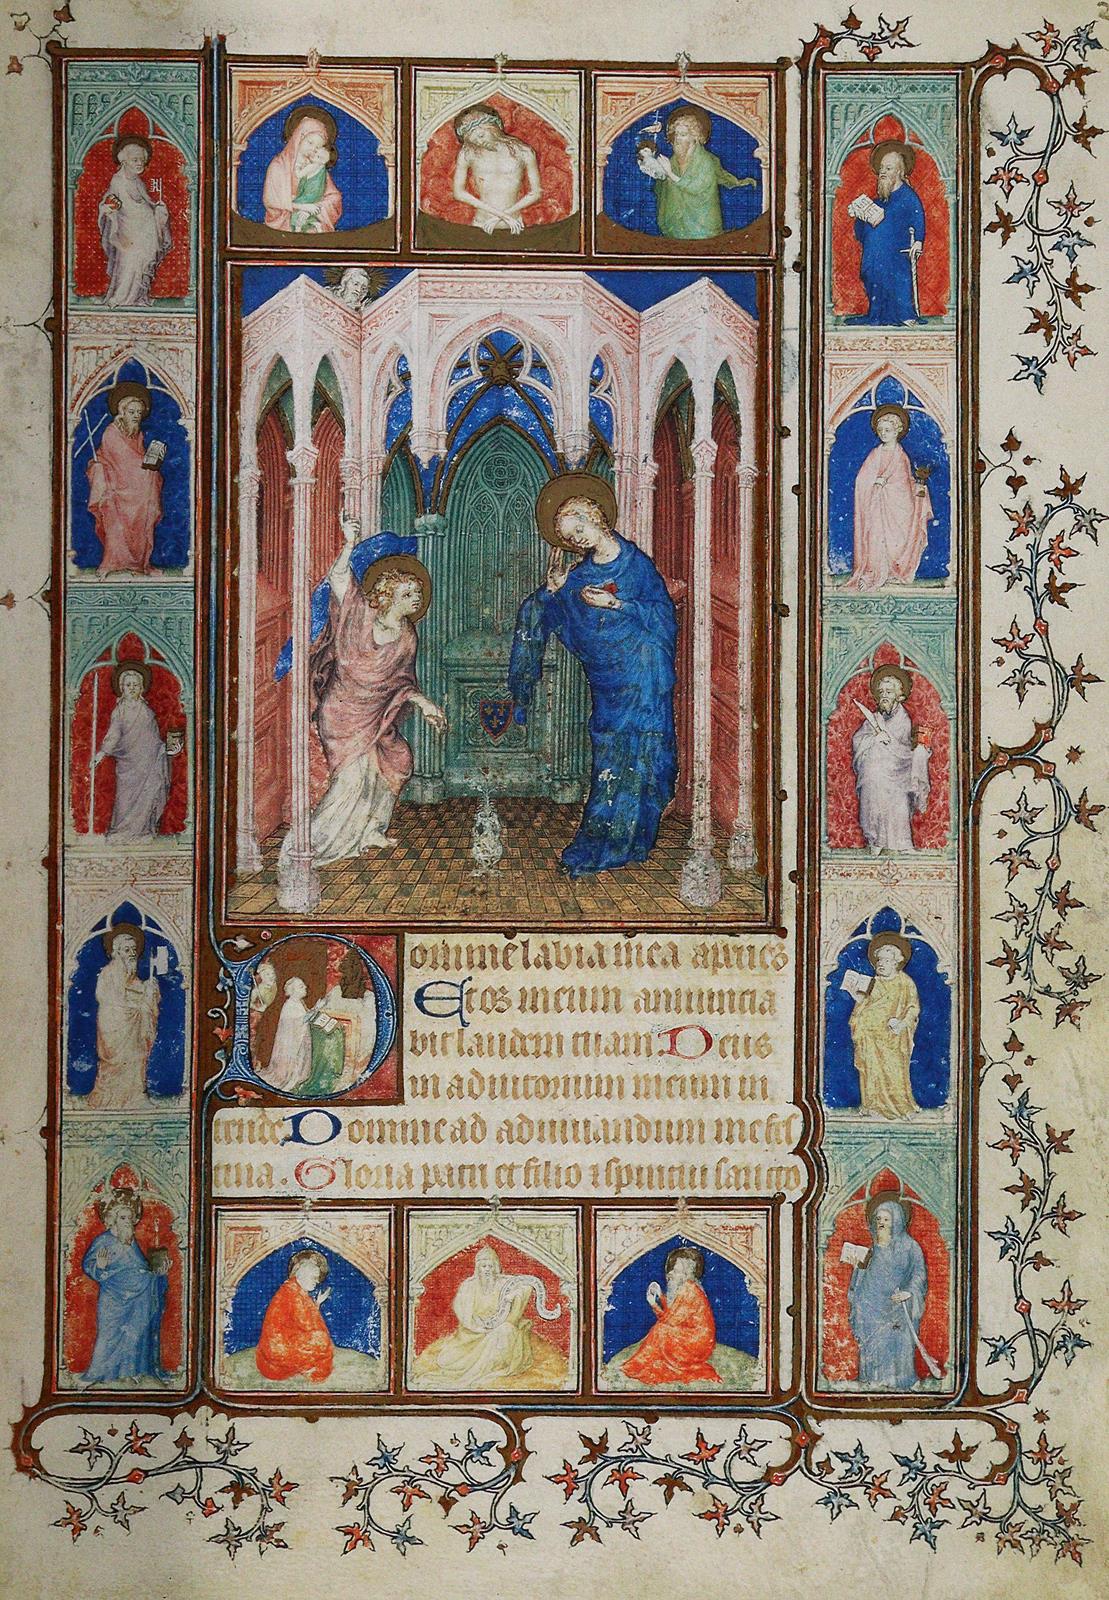 Domine labia mea aperies
Et os meum annuncia
bit laudem tuam. Deus
in adiutorium meum in
tende Domine ad adiuuandum me fes
tina. Gloria patri et filio et spiritui sancto